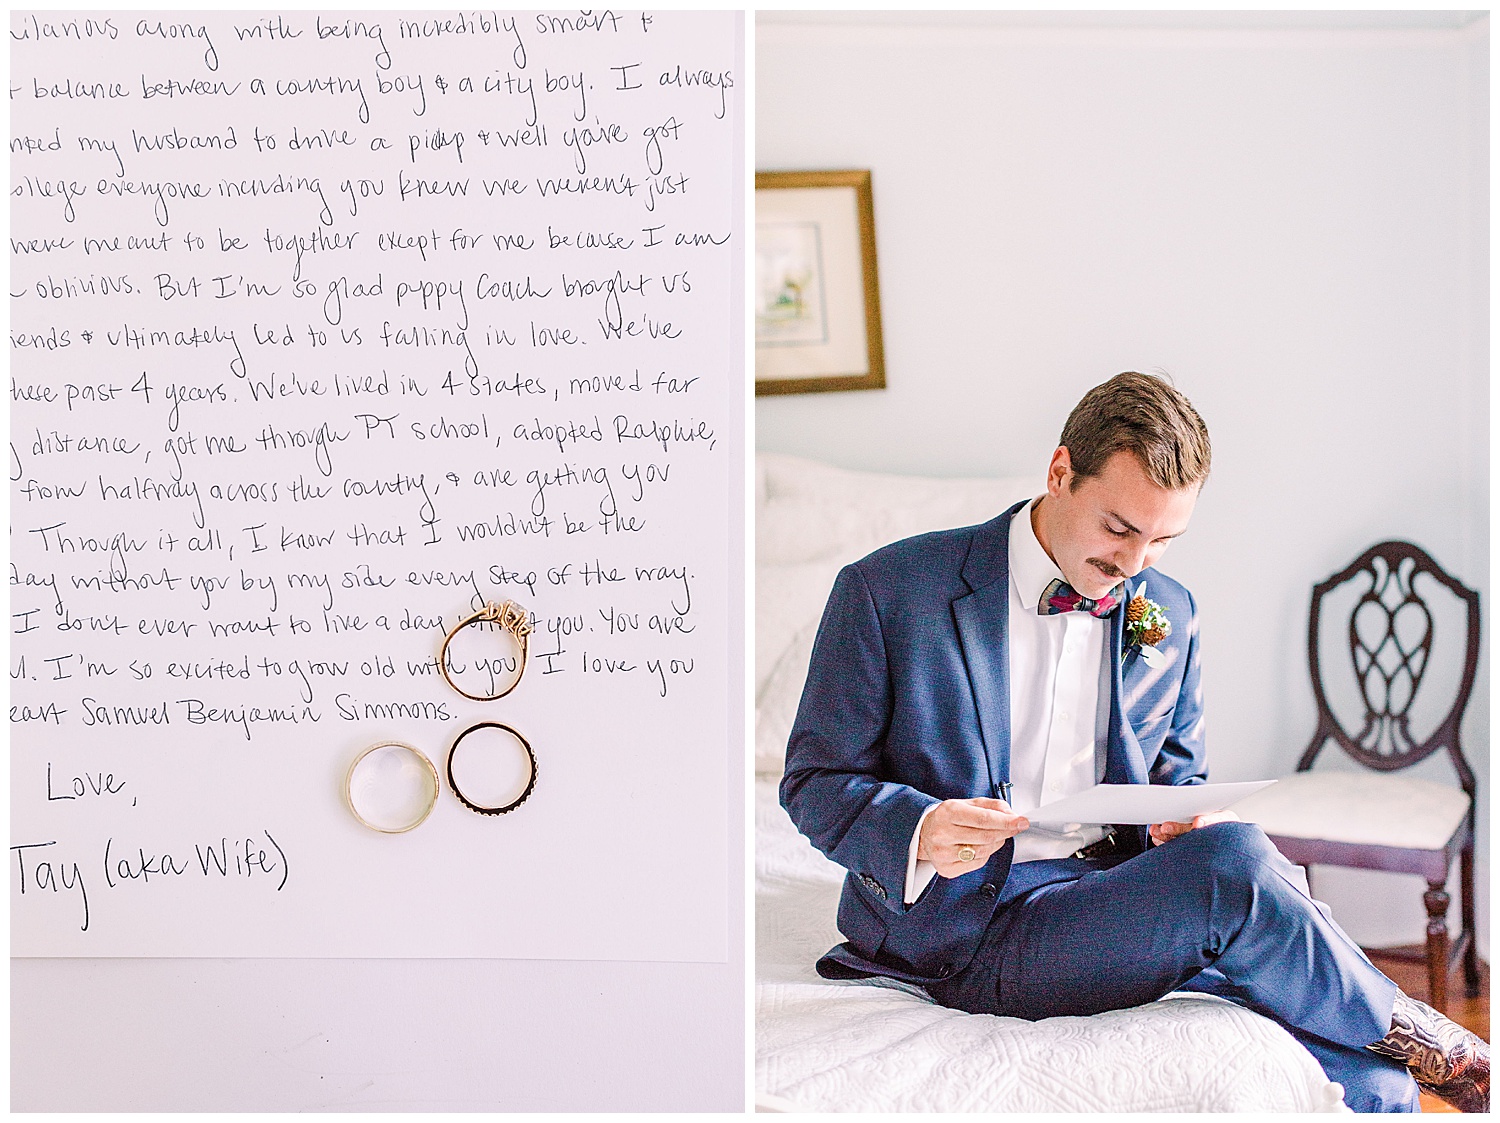 hilarious along with being incredibly smart &
balance between a country boy & a city boy. I always
my husband to drive a pickup & well you've got
college everyone including you knew we weren't just
were meant to be together except for me because I am
oblivious. But I'm so glad puppy Coach brought us
& ultimately led to us falling in love. We've
these past 4 years. We've lived in 4 states, moved far
distance, got me through PT school, adopted Ralphie,
from halfway across the country, & are getting you
Through it all, I know that I wouldn't be the
day without you by my side every step of the way.
I don't ever want to live a day you. You are
I'm so excited to grow old with you I love you
Samuel Benjamin Simmons.
Love,
Tay (aka Wife)